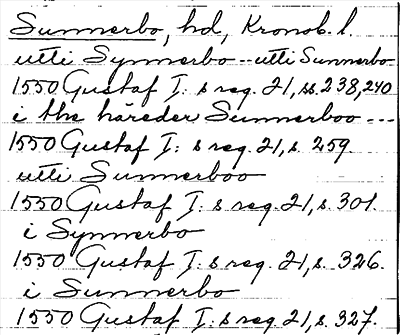 Sunnerbo, hd, Kronob. l.
utti Synnerbo -- utti Sunnerbo
1550 Gustaf I: s reg. 21, ss. 238, 240
i the häreder Sunnerboo ---
1550 Gustaf I: s reg. 21, s. 259.
utti Sunnerboo
1550 Gustaf I: s reg. 21, s. 301.
i Synnerbo
1550 Gustaf I: s reg. 21, s. 326.
i Sunnerbo
1550 Gustaf I: s reg. 21, s. 327.